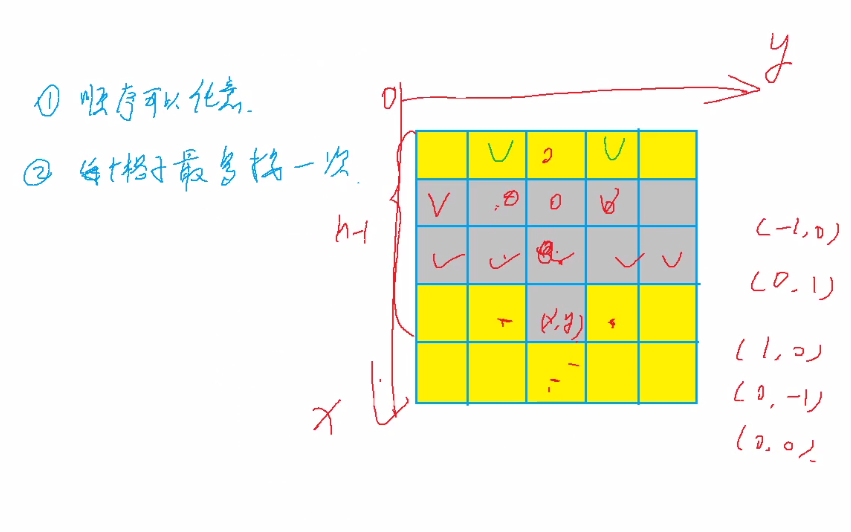 ① 顺序可以任意.
② 每个格子最多按一次.
0
y
n-1
(x,y)
x
0
(-1,0)
(0,1)
(1,0)
(0,-1)
(0,0)